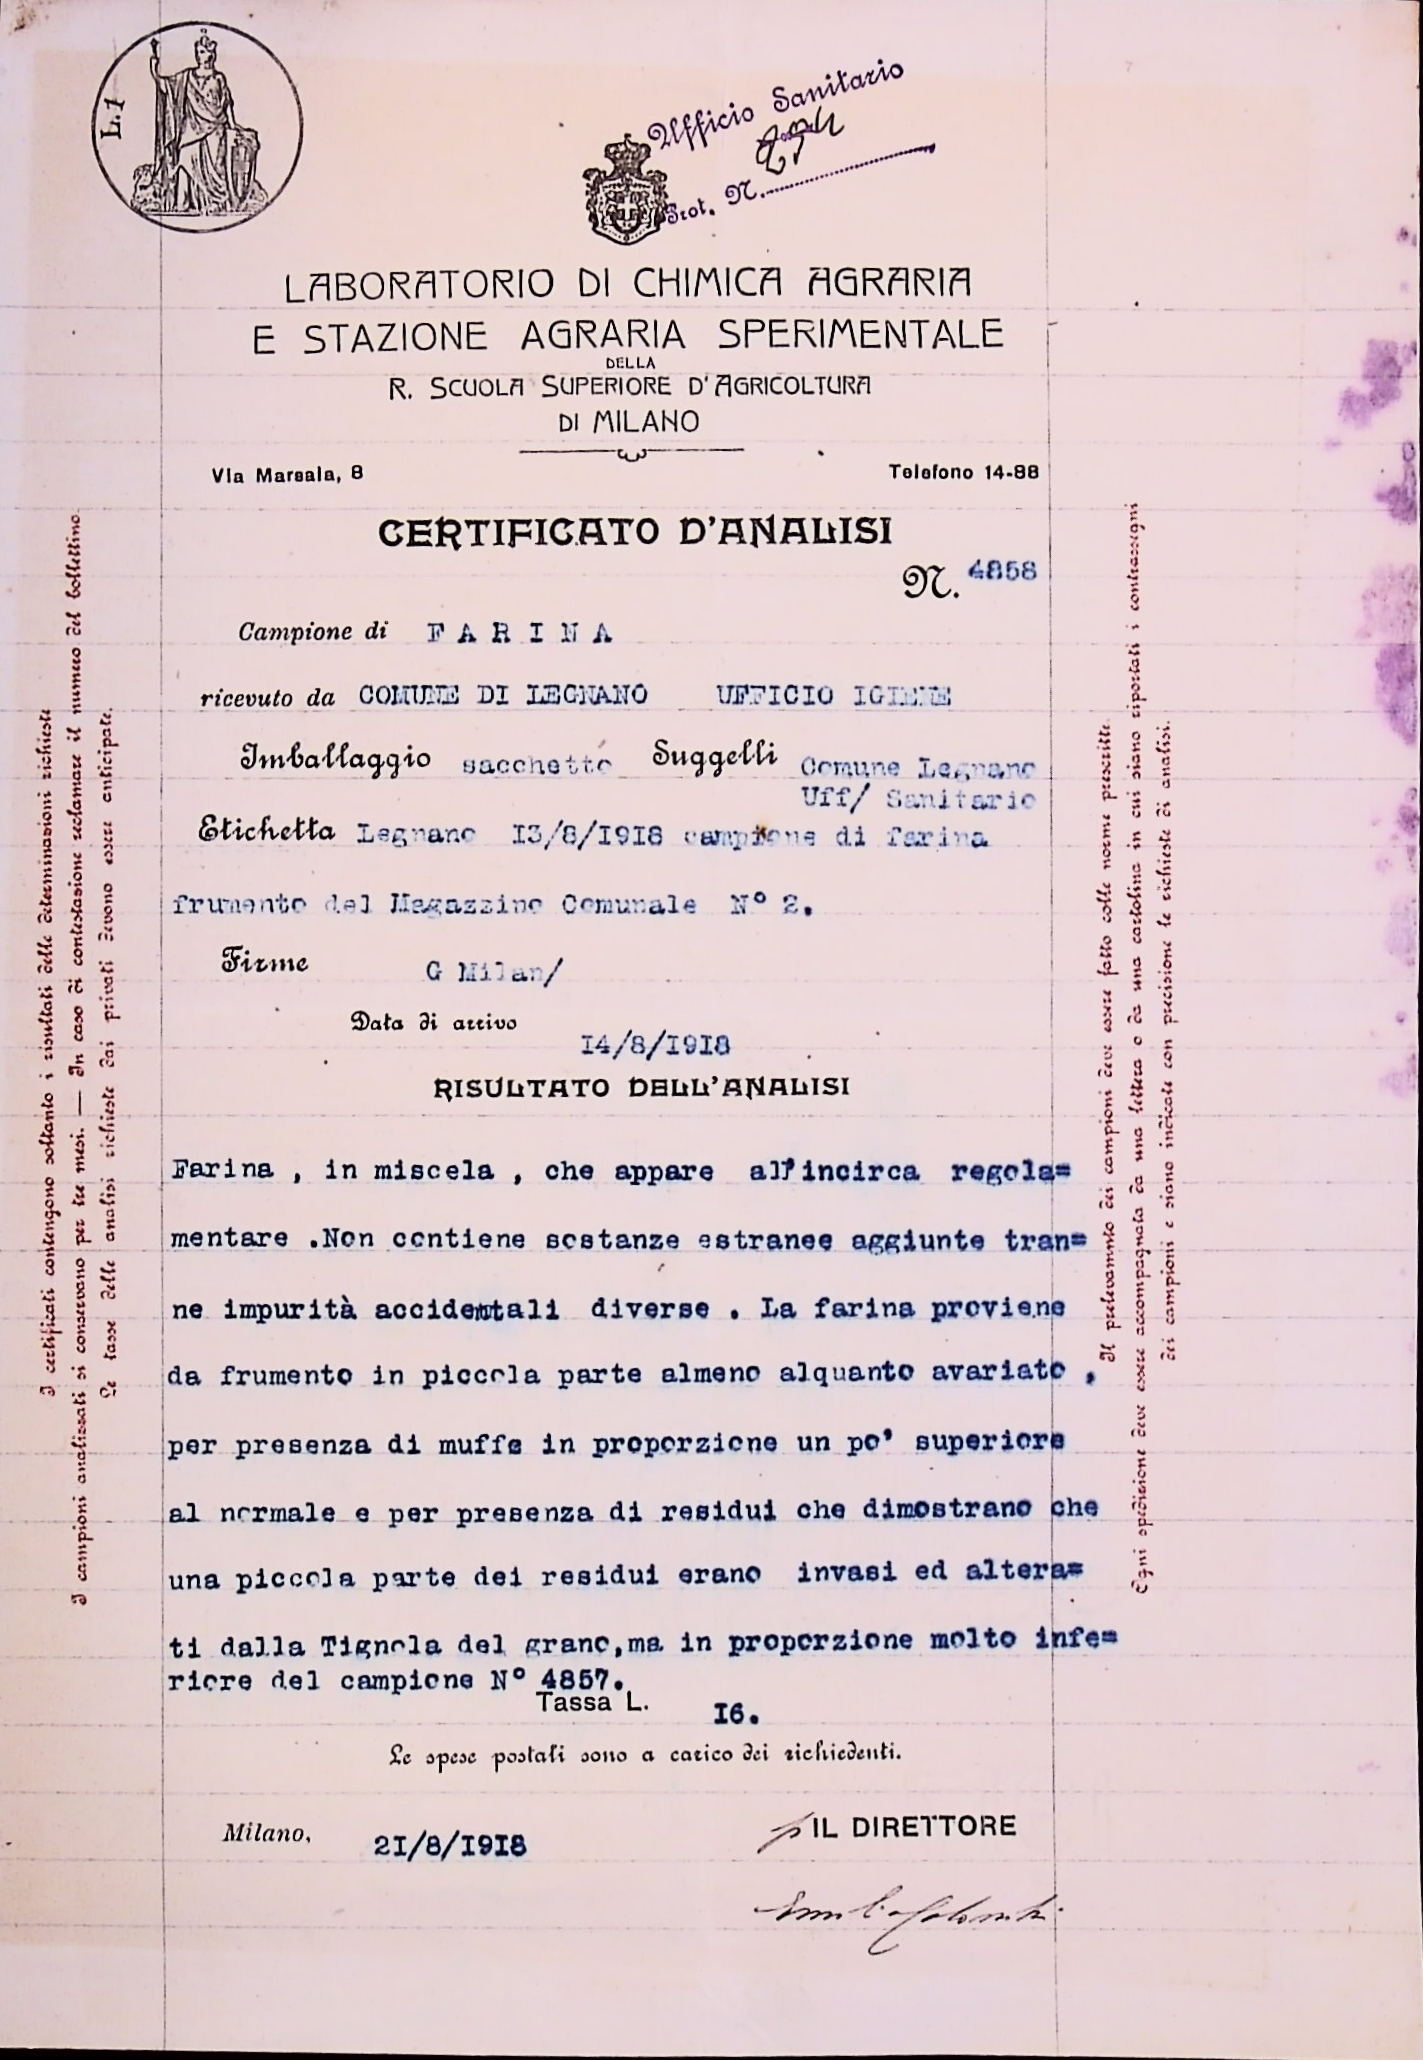 L.1
Ufficio Sanitario
Prot. N. 294
LABORATORIO DI CHIMICA AGRARIA
E STAZIONE AGRARIA SPERIMENTALE
DELLA
R. SCUOLA SUPERIORE D'AGRICOLTURA
DI MILANO
Via Marsala, 8 Telefono 14-88
CERTIFICATO D'ANALISI
N. 4858
Campione di FARINA
ricevuto da COMUNE DI LEGNANO UFFICIO IGIENE
Imballaggio sacchetto Suggelli Comune Legnano
Uff/ Sanitario
Etichetta Legnano I3/8/I9I8 campione di farina
frumento del Magazzino Comunale N° 2.
Firme G Milan/
Data di arrivo
I4/8/I9I8
RISULTATO DELL'ANALISI
Farina , in miscela , che appare all'incirca regola=
mentare .Non contiene sostanze estranee aggiunte tran=
ne impurità accidentali diverse . La farina proviene
da frumento in piccola parte almeno alquanto avariato ,
per presenza di muffe in proporzione un po' superiore
al normale e per presenza di residui che dimostrano che
una piccola parte dei residui erano invasi ed altera=
ti dalla Tignola del grano,ma in proporzione molto infe=
riore del campione N° 4857.
Tassa L. I6.
Le spese postali sono a carico dei richiedenti.
Milano, 2I/8/I9I8
p IL DIRETTORE
I certificati contengono soltanto i risultati delle determinazioni richieste
I campioni analizzati si conservano per tre mesi. — In caso di contestazione reclamare il numero del bollettino.
Le tasse delle analisi richieste dai privati devono essere anticipate.
Il prelevamento dei campioni deve essere fatto colle norme prescritte.
Ogni spedizione deve essere accompagnata da una lettera o da una cartolina in cui siano riportati i contrassegni
dei campioni e siano indicate con precisione le richieste di analisi.